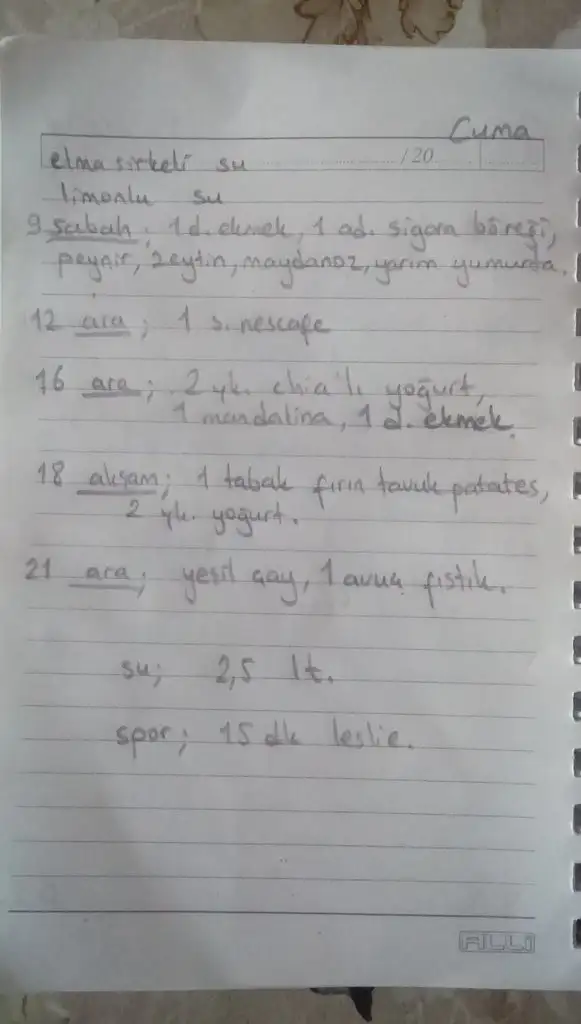 Cuma
/20
elma sirkeli su
limonlu su
9 sabah; 1 d. ekmek, 1 ad. sigara böreği,
peynir, zeytin, maydanoz, yarım yumurta.
12 ara; 1 s. nescafe
16 ara; 2 yk. chia'lı yoğurt,
1 mandalina, 1 d. ekmek.
18 akşam; 1 tabak fırın tavuk patates,
2 yk. yoğurt.
21 ara; yeşil çay, 1 avuç fıstık.
su; 2,5 lt.
spor; 15 dk leslie.